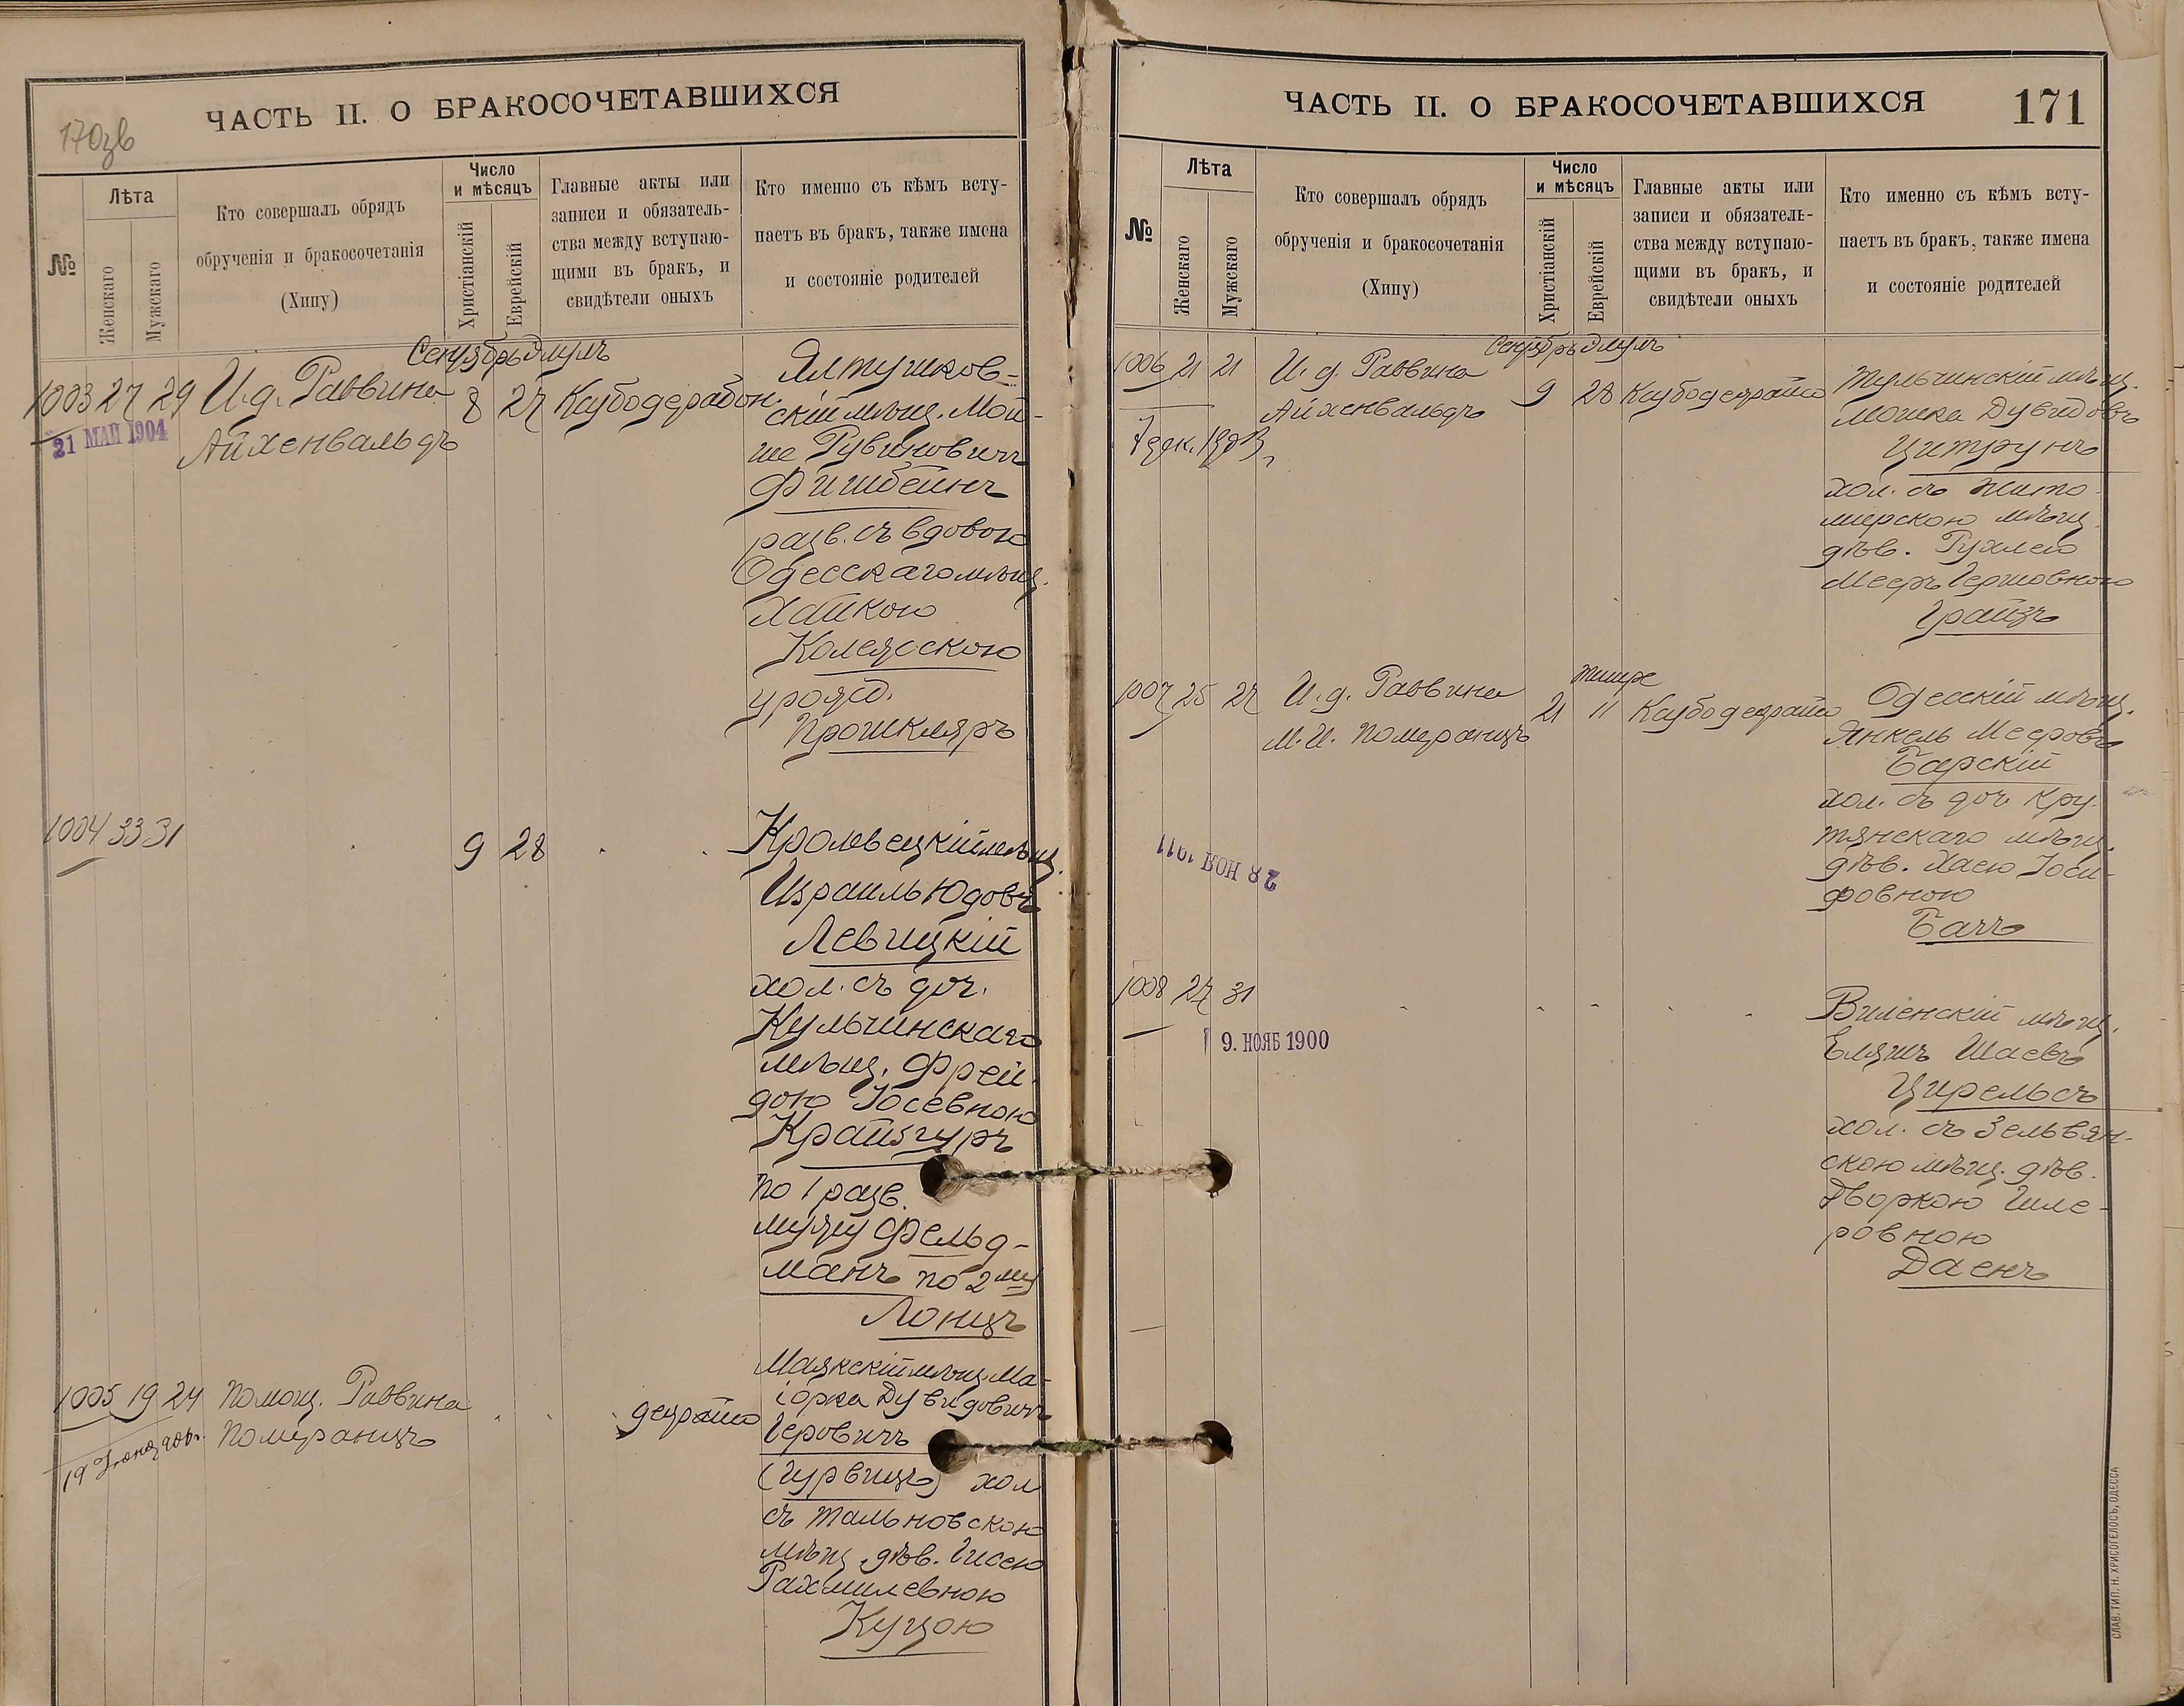 170зв
ЧАСТЬ II. О БРАКОСОЧЕТАВШИХСЯ
№
Лѣта
Женскаго
Мужскаго
Кто совершалъ обрядъ
обрученія и бракосочетанія
(Хипу)
Число
и мѣсяцъ
Христіанскій
Еврейскій
Главные акты или
записи и обязатель-
ства между вступаю-
щими въ бракъ, и
свидѣтели оныхъ
Кто именно съ кѣмъ всту-
паетъ въ бракъ, также имена
и состояніе родителей
Сентябрь Элулъ
1003 27 29 И.д. Раввина 8 27
Айхенвальдъ
21 МАЙ 1904
Ялтушков-
скій мѣщ. Мой-
ше Рувиновичъ
Фишбейнъ
разв. съ вдовою
Одесскаго мѣщ.
Хайкою
Колеясскою
урожд.
Прошкляръ
1004 33 31 9 28
Кролевецкій мѣщ.
Израиль Юдовъ
Левицкій
хол. съ доч.
Кульчинскаго
мѣщ. Фрей-
дою Іосевною
Крайзгуръ
по 1 разв.
мужу Фельд-
манъ по 2му
Лонцъ
1005 19 24 Помощ. Раввина
Померанцъ
Маякскій мѣщ. Ма-
іорка Дувидовичъ
Геровичъ
(Гурвицъ) хол
съ Тальновскою
мѣщ. дѣв. Гисею
Рахмилевною
Куцою
ЧАСТЬ II. О БРАКОСОЧЕТАВШИХСЯ
171
№
Лѣта
Женскаго
Мужскаго
Кто совершалъ обрядъ
обрученія и бракосочетанія
(Хипу)
Число
и мѣсяцъ
Христіанскій
Еврейскій
Главные акты или
записи и обязатель-
ства между вступаю-
щими въ бракъ, и
свидѣтели оныхъ
Кто именно съ кѣмъ всту-
паетъ въ бракъ, также имена
и состояніе родителей
Сентябрь Элулъ
1006 21 21 И.д. Раввина 9 28
Айхенвальдъ
7 дек.
Тульчинскій мѣщ.
Мошка Дувидовъ
Цитрунъ
хол. съ Жито-
мирскою мѣщ.
дѣв. Рухлею
Мееръ Гершовною
Грайзъ
Тишре
1007 25 27 И.д. Раввина 21 11
М.И. Померанцъ
28 НОЯ 1911
Одесскій мѣщ.
Янкель Мееровъ
Барскій
хол. съ доч. Кру-
тянскаго мѣщ.
дѣв. Хаею Іоси-
фовною
Бачъ
1008 27 31
9. НОЯБ 1900
Виленскій мѣщ.
Еляшъ Шаевъ
Цирельсъ
хол. съ Зельвян-
скою мѣщ. дѣв.
Дворкою Шле-
ровною
Даенъ
СЛАВ. ТИП. Н. ХРИСОГЕЛОСЪ, ОДЕССА